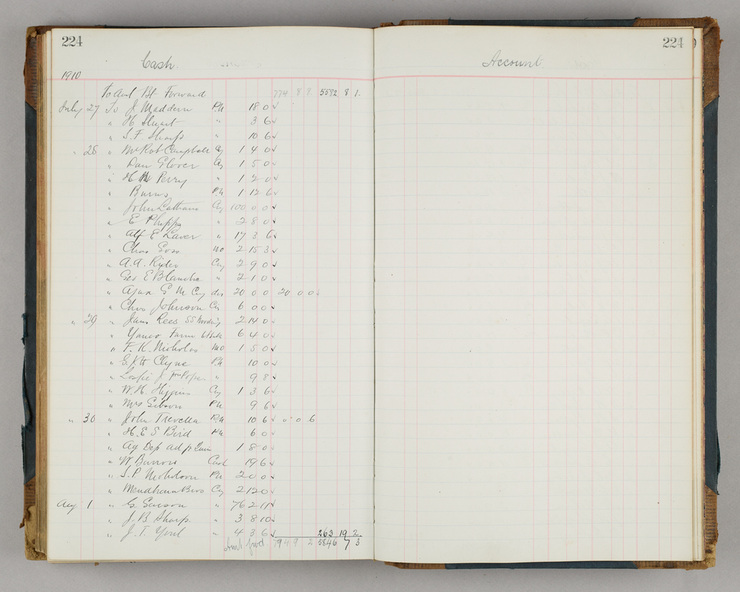 224
Cash
1910
To Amt Bt Forward 774 8 8 5582 8 1
July 27 To J Maddern Ph 18 0
" H Stuart " 3 6
" S. F. Sharps " 10 6
" 28 " Mr Robt Campbell Cy 1 4 0
" Dan Glover Cy 1 5 0
" H Perry " 1 2 0
" Burns Ph 1 12 6
" John Latham Cy 100 0 0
" E Phipps " 2 8 0
" Alf E Laver " 17 3 6
" Chas Goss MO 2 15 3
" A. A. Rider Cy 2 9 0
" Geo E Blanche " 2 1 0
" Ajax G M Coy 20 0 0 20 0 0
" Chas Johnson 6 0 0
" 29 " Jams Rees 2 14 0
" Yanco Farm 6 4 0
" F. K. Nicholas MO 1 5 0
" Clyne Ph 10 0
" Leslie J 9 8
" W. H Higgins Cy 1 3 6
" Mrs Gibson Ph 9 6
" 30 " John Trevella Ph 10 6 0 6
" H. E. S Bird Ph 6 0
" Ag Dep 1 8 0
" W Burrows 19 6
" S. P. Nicholson Ph 2 0 0
" Mendhem Bros Cy 2 12 0
Aug 1 " G. " 76 2 11
" J. B Sharp " 3 8 10
" J. T. " 4 3 6 263 19 2
949 2 5846 7 3
224
Account